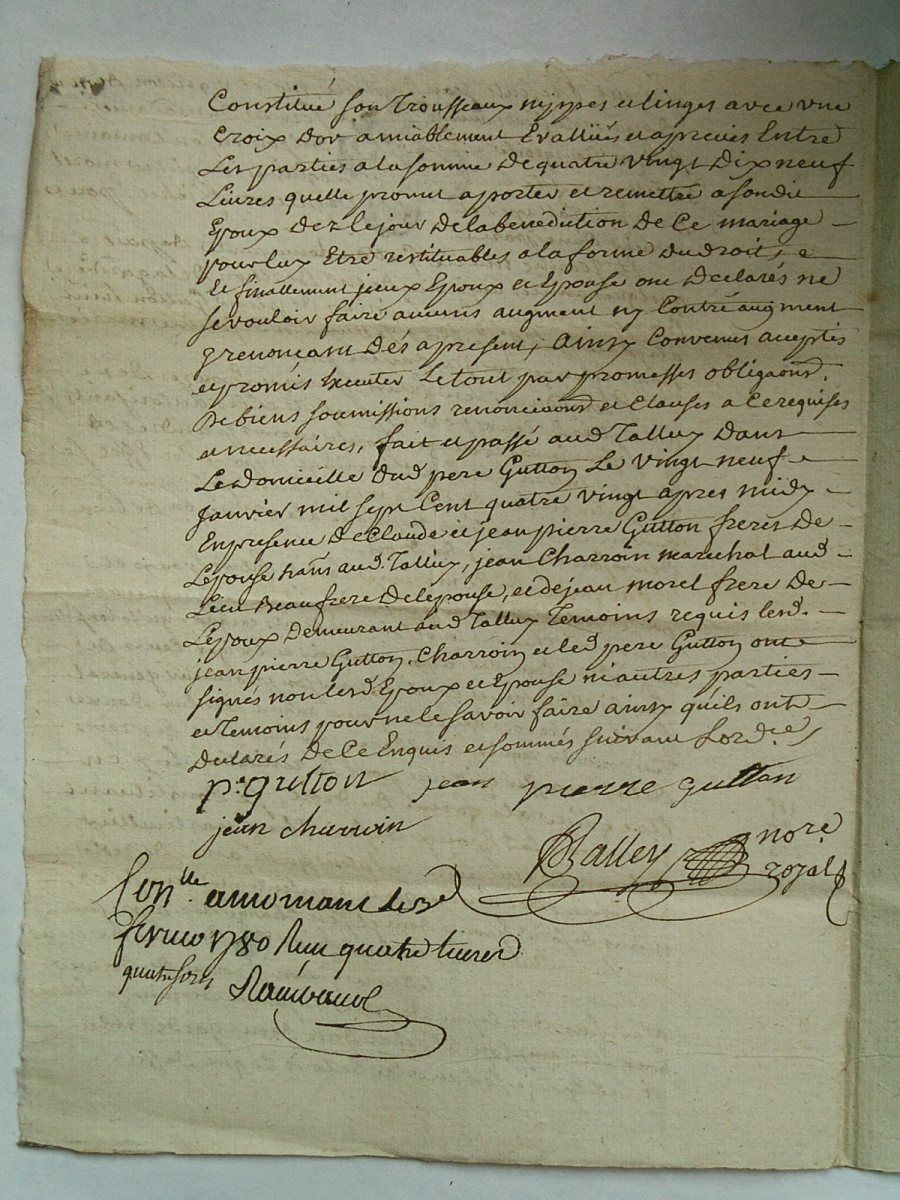 Constitué son Trousseaux nippes et linges avec vne
croix d'or amiablement Evallüés et apreciés Entre
Les parties a la somme de quatre vingt dix neuf
Livres quelle promet aporter et remettre a sondit
Epoux dez le jour de la benediction de Ce mariage
pour luy Etre restituables a la forme du droit, e
Et finallement jceux Epoux et Epouse ont declarés ne
se vouloir faire aucuns augment ny Contré augment
y renonçant dés apresent, Ainsy Convenus acceptés
et promis Executer Le tout par promesses obligaons.
de biens soumissions renonciaons et Clauses a Ce requises
et necessaires, fait et passé aud Talluy dans
Le domicille dud pere Gutton Le vingt neuf
Janvier mil sept Cent quatre vingt apres midy
En presence de Claude et jean pierre Gutton freres de
Lepouse hans aud. Talluy, jean Charroin marechal aud
Lieu Beaufrere de lepouse, et de jean morel frere de
Lepoux demeurant aud Talluy Temoins requis lesd.
jean pierre Gutton, Charroin et led pere Gutton ont
signés non lesd. Epoux et Epouse ni autres parties
et Temoins pour ne le savoir faire ainsy quils ont
declarés de Ce Enquis et sommés suivant Lord.ce
p. gutton jean pierre gutton
jean charroin
Balley no.re
royal
Con.lle a mornant le 3e
fevrier 1780 Reçu quatre livres
quatre sols